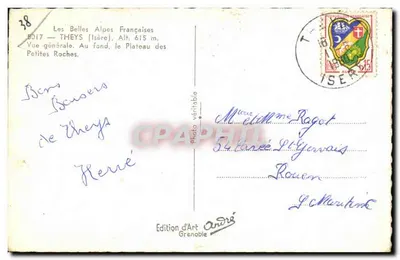 38
Les Belles Alpes Françaises
8017 - THEYS (Isère), Alt. 615 m.
Vue générale. Au fond, le Plateau des
Petites Roches.
0,15
ISERE
Bons
Baisers
de Theys
Hervé
Photo véritable
CPAPHIL
et Mme Ragot
St Gervais
Rouen
S. Maritime
Edition d'Art André
Grenoble